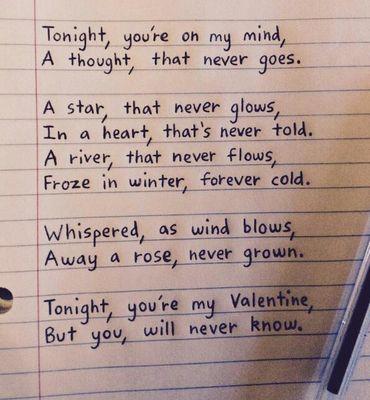 Tonight, you're on my mind,
A thought, that never goes.
A star, that never glows,
In a heart, that's never told.
A river, that never flows,
Froze in winter, forever cold.
Whispered, as wind blows,
Away a rose, never grown.
Tonight, you're my Valentine,
But you, will never know.